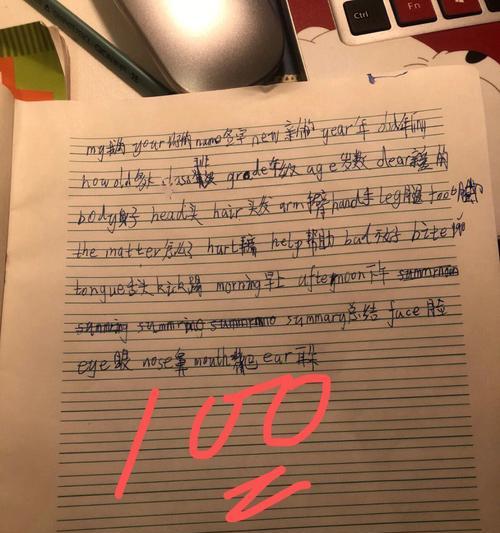 Ctrl
Fn
my我的 your你的 name名字 new新的 year年 old年
how old多大 class班级 grade年级 age岁数 dear亲爱的
body身子 head头 hair头发 arm手臂 hand手 leg腿 foot脚
the matter怎么了 hurt痛 help帮助 bad bite咬
tongue舌头 kick踢 morning早上 afternoon下午
summary总结 face脸
eye眼 nose鼻 mouth嘴巴 ear耳朵
100